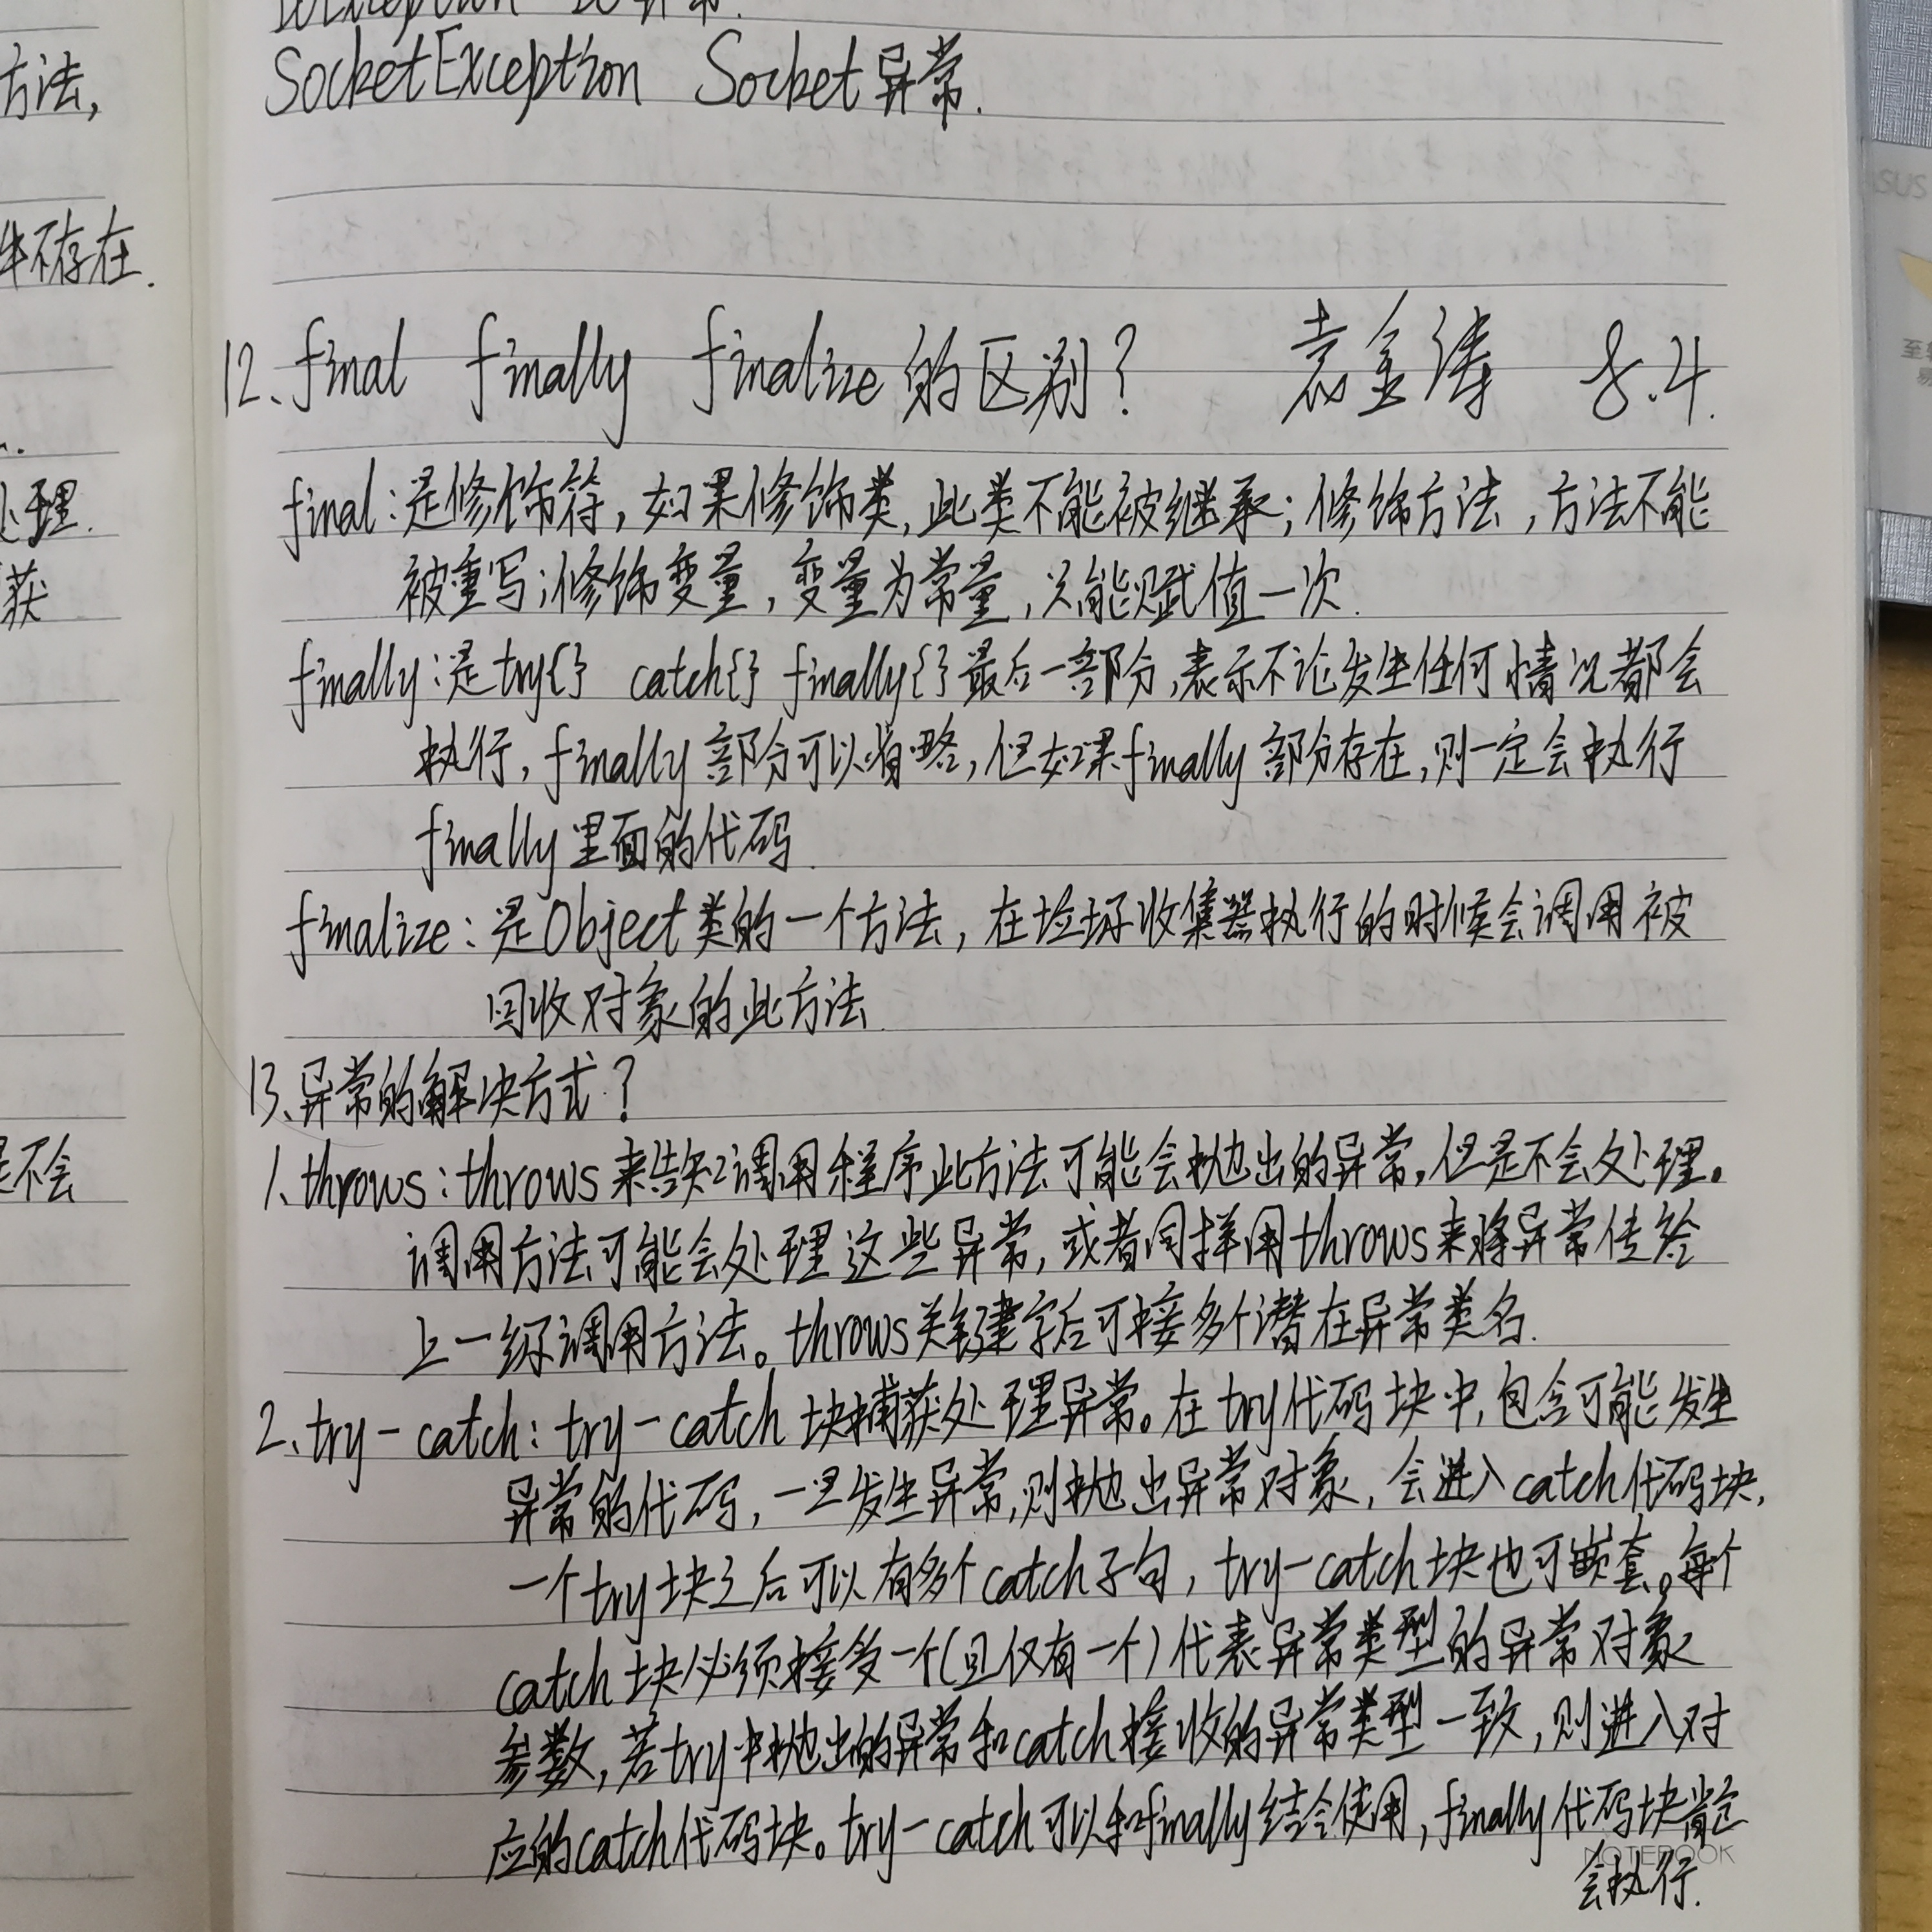 SocketException Socket异常.
12、final finally finalize的区别? 袁金涛 8.4.
final:是修饰符,如果修饰类,此类不能被继承;修饰方法,方法不能
被重写;修饰变量,变量为常量,只能赋值一次.
finally:是try{} catch{} finally{}最后一部分,表示不论发生任何情况都会
执行,finally部分可以省略,但如果finally部分存在,则一定会执行
finally里面的代码.
finalize:是Object类的一个方法,在垃圾收集器执行的时候会调用被
回收对象的此方法.
13、异常的解决方式?
1、throws:throws来告知调用程序此方法可能会抛出的异常,但是不会处理。
调用方法可能会处理这些异常,或者同样用throws来将异常传给
上一级调用方法。throws关键字后可接多个潜在异常类名.
2、try-catch:try-catch块捕获处理异常。在try代码块中,包含可能发生
异常的代码,一旦发生异常,则抛出异常对象,会进入catch代码块,
一个try块之后可以有多个catch子句,try-catch块也可嵌套。每个
catch块必须接受一个(且仅有一个)代表异常类型的异常对象
参数,若try中抛出的异常和catch接收的异常类型一致,则进入对
应的catch代码块。try-catch可以和finally结合使用,finally代码块肯定
NOTEBOOK
会执行.
方法,
件不存在.
处理.
获
是不会
SUS